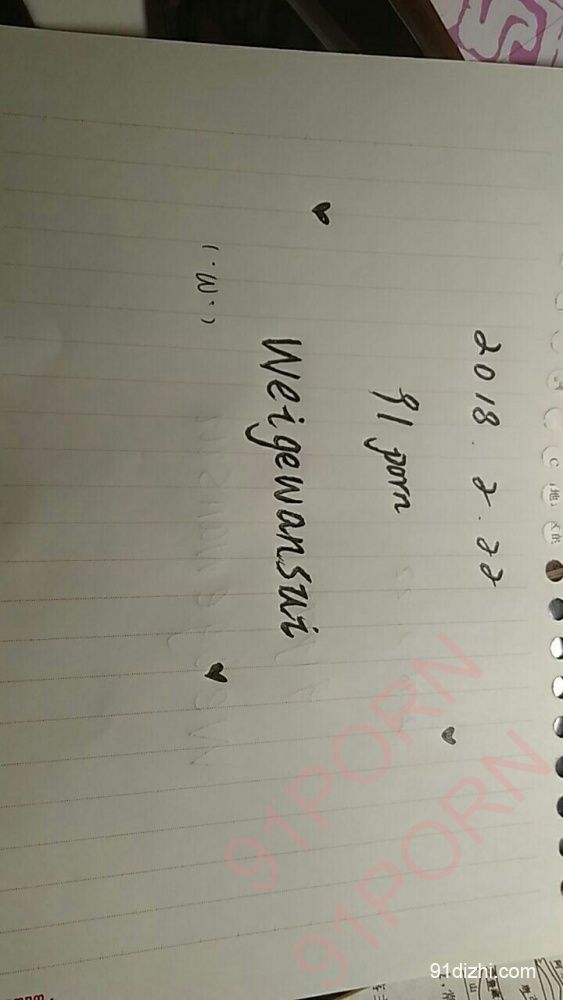 2018.2.22
91 porn
Weigewansui
(·ω·)
91PORN
91PORN
91dizhi.com